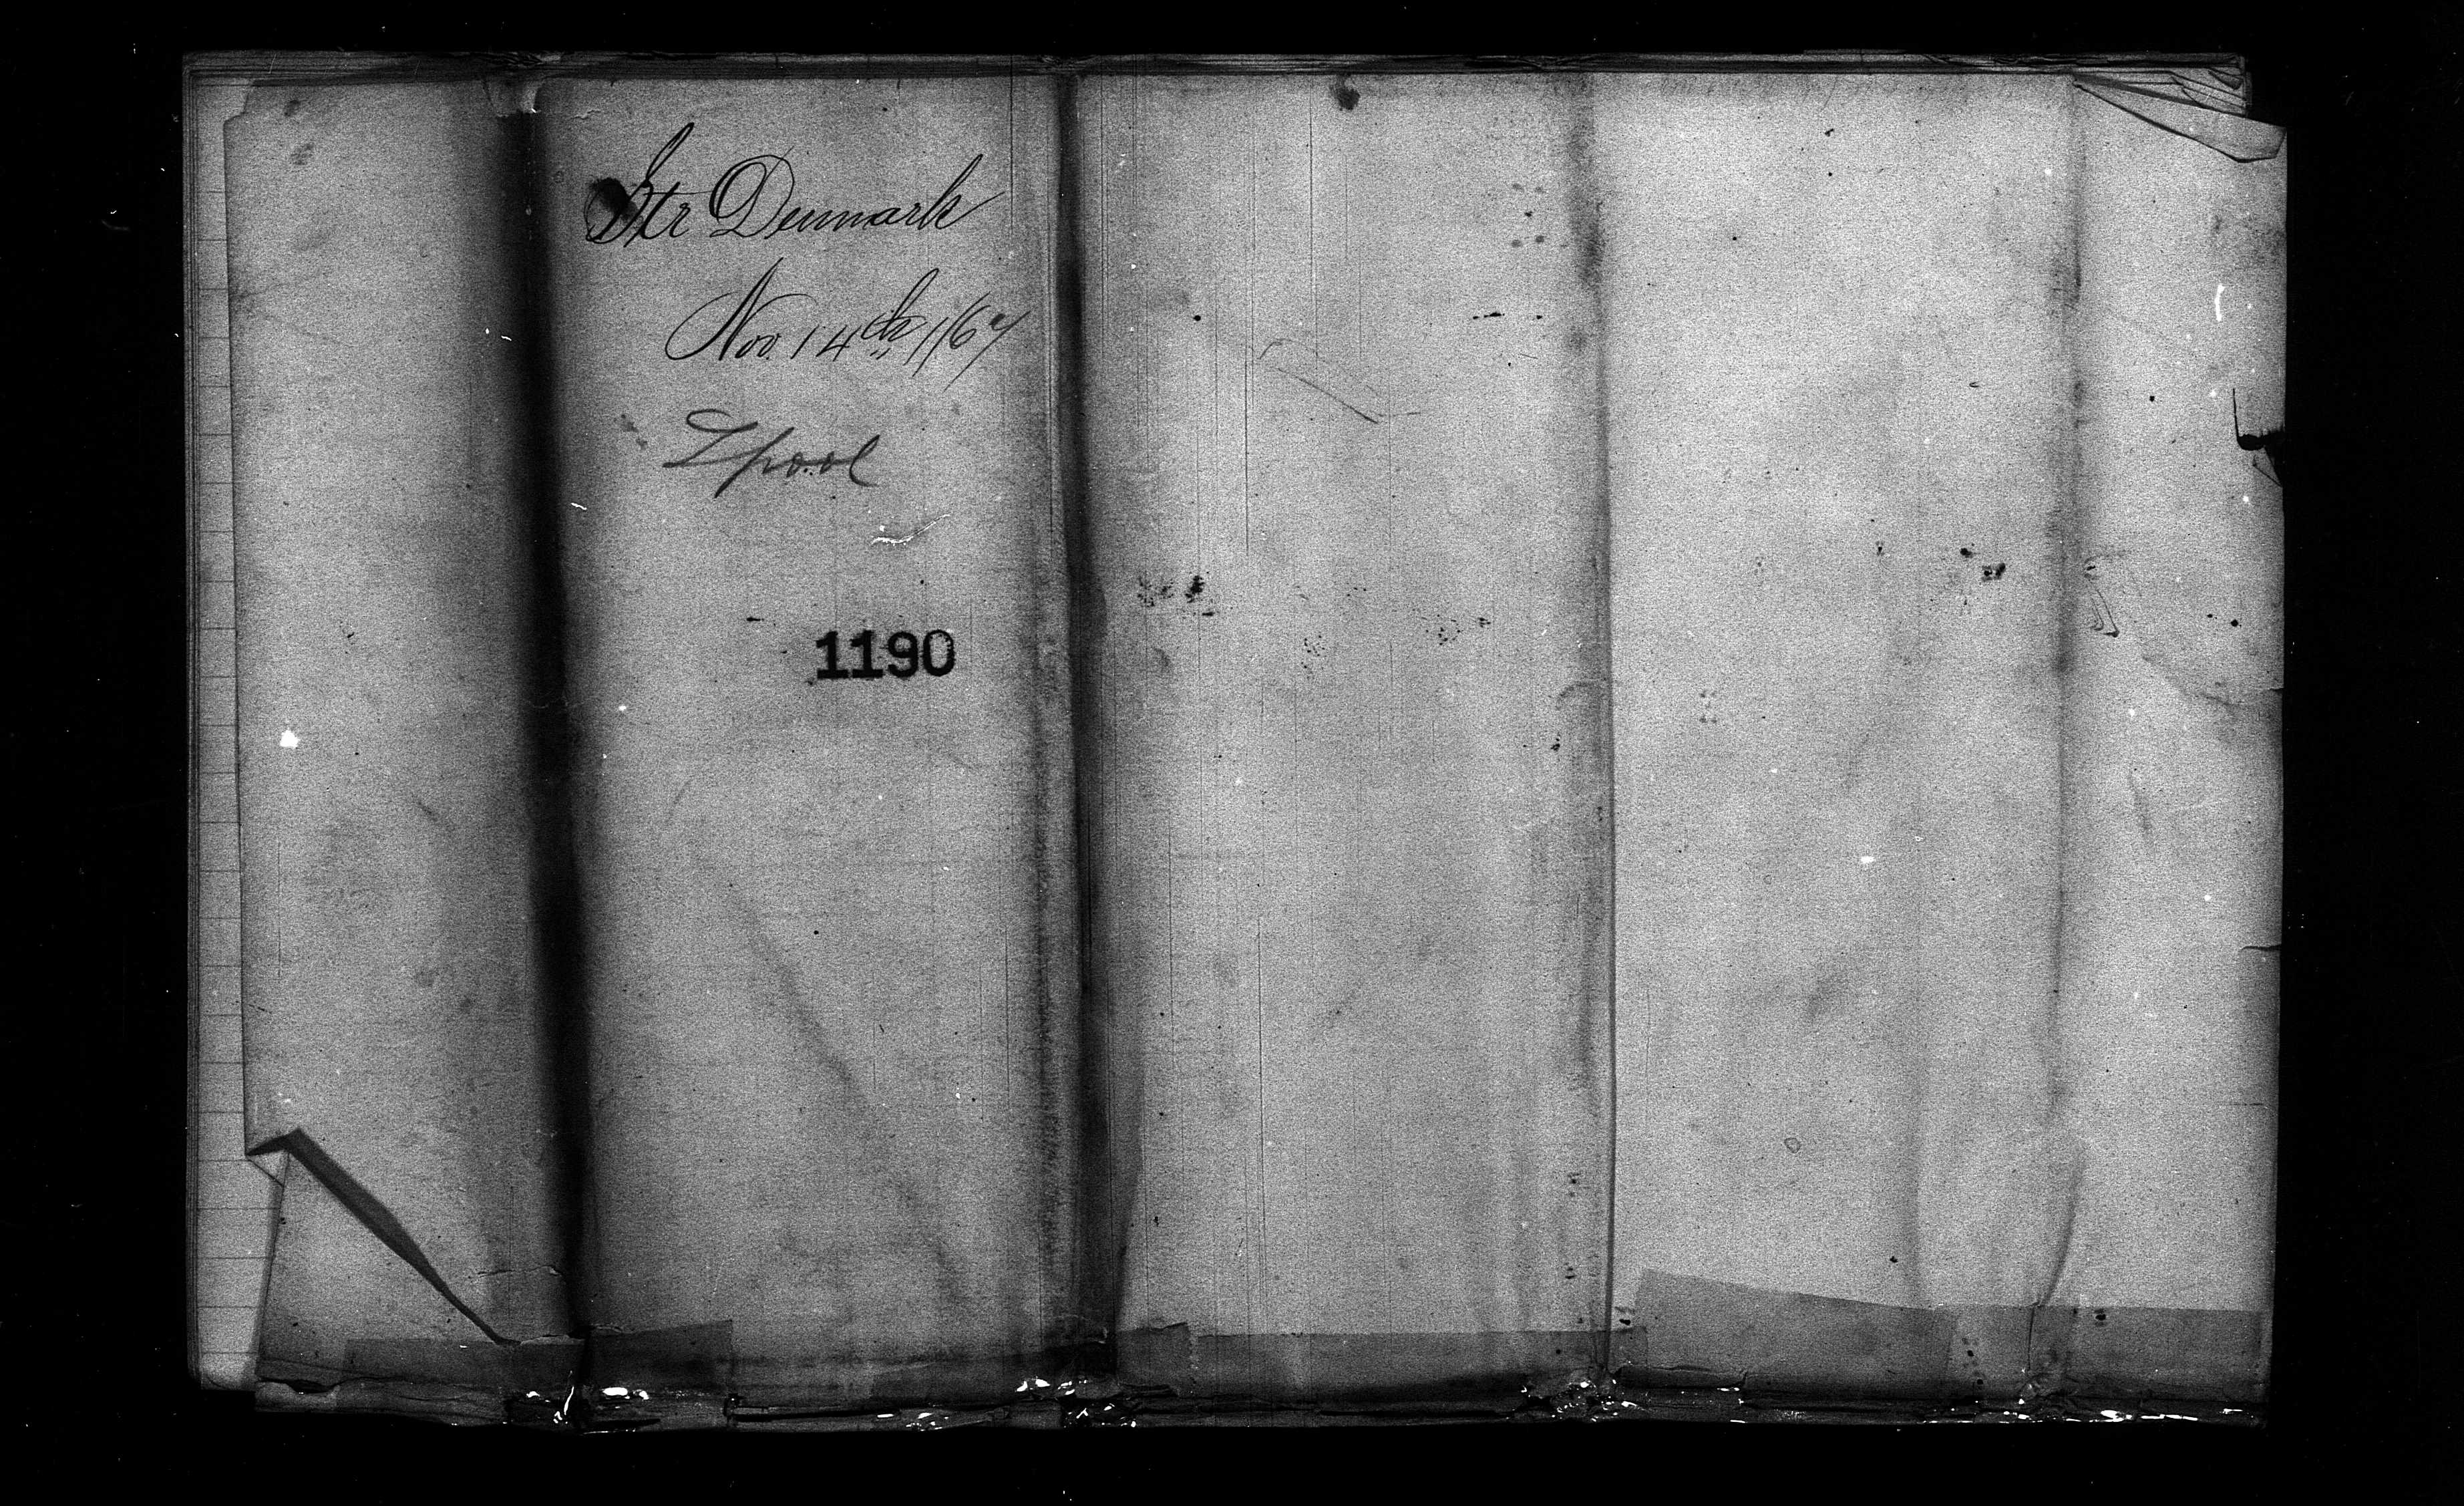 Str Denmark
Nov. 14th /67
Lpool
1190